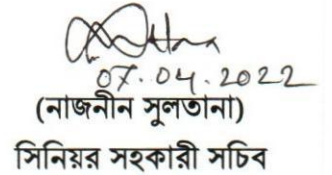 07.04.2022
(নাজনীন সুলতানা)
সিনিয়র সহকারী সচিব